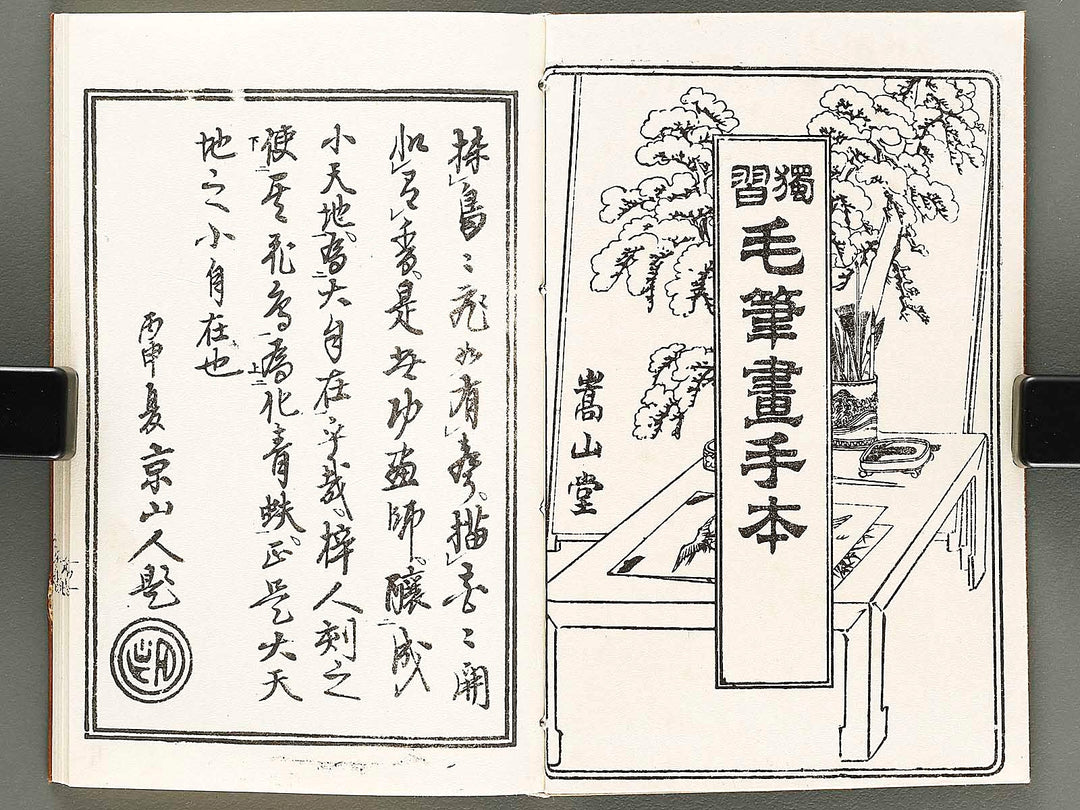 獨習
毛筆畫手本
嵩山堂
鳥〻飛如有聲。描花〻開
似香。是無功畫師。釀成
小天地。為大自在乎哉。梓人刻之
使其花鳥為化青蚨。正是大天
地之小自在也
丙申夏 京山人題